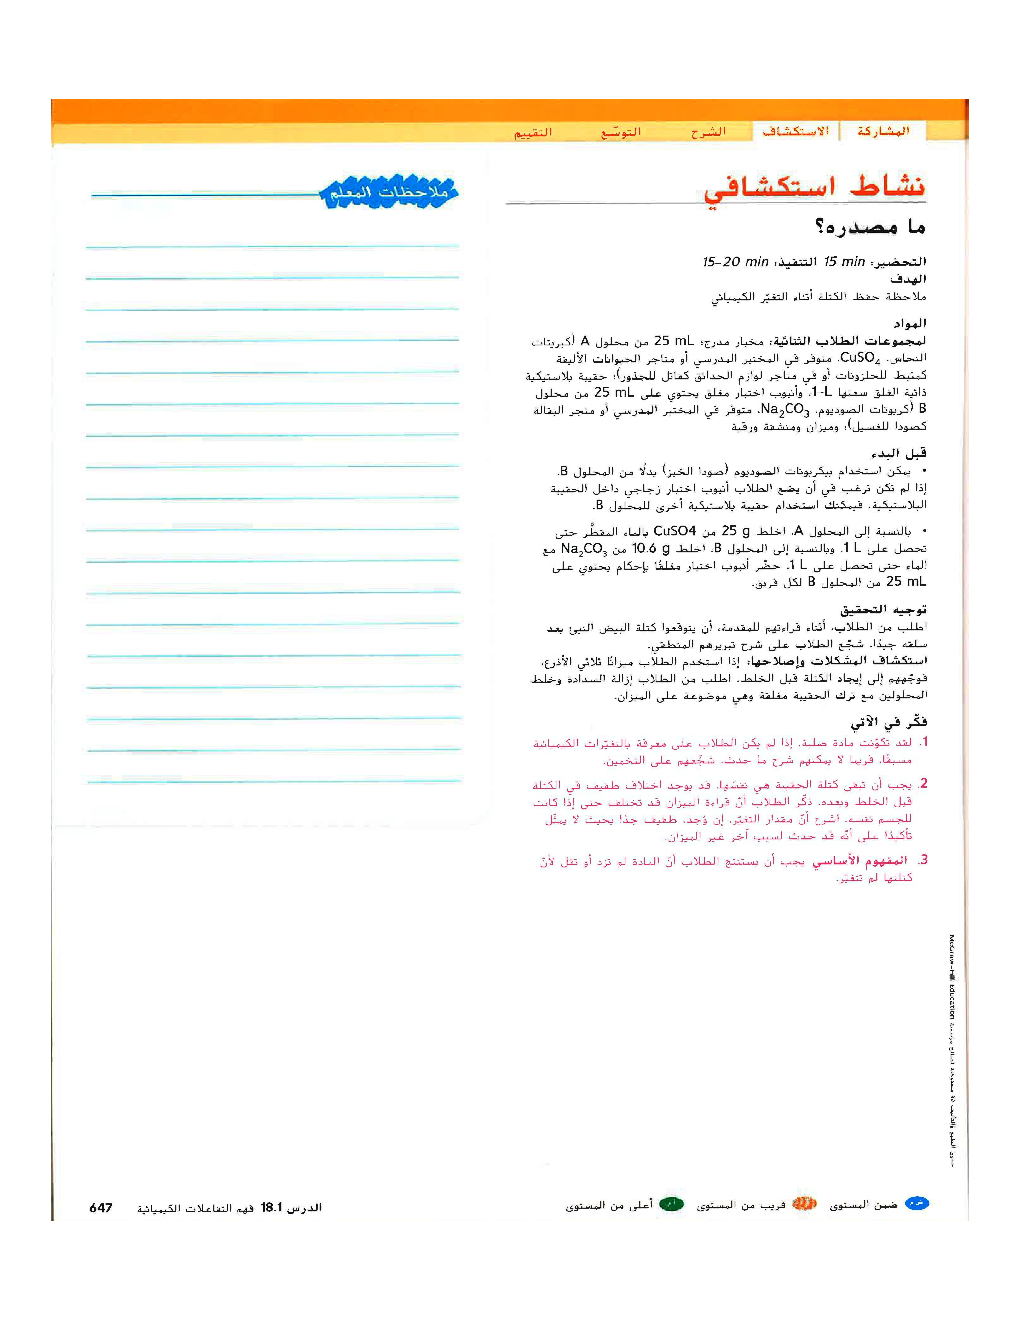 المشاركة الاستكشاف الشرح التوسّع التقييم
نشاط استكشافي
ما مصدره؟
التحضير: 15 min التنفيذ: 15–20 min
الهدف
ملاحظة حفظ الكتلة أثناء التغيّر الكيميائي
المواد
لمجموعات الطلاب الثنائية: مخبار مدرج؛ 25 mL من محلول A (كبريتات
النحاس، CuSO4، متوفر في المختبر المدرسي أو متاجر الحيوانات الأليفة
كمثبط للحلزونات أو في متاجر لوازم الحدائق كقاتل للجذور)؛ حقيبة بلاستيكية
ذاتية الغلق سعتها 1-L، وأنبوب اختبار مغلق يحتوي على 25 mL من محلول
B (كربونات الصوديوم، Na2CO3، متوفر في المختبر المدرسي أو متجر البقالة
كصودا للغسيل)؛ وميزان ومنشفة ورقية
قبل البدء
• يمكن استخدام بيكربونات الصوديوم (صودا الخبز) بدلًا من المحلول B.
إذا لم تكن ترغب في أن يضع الطلاب أنبوب اختبار زجاجي داخل الحقيبة
البلاستيكية، فيمكنك استخدام حقيبة بلاستيكية أخرى للمحلول B.
• بالنسبة إلى المحلول A، اخلط 25 g من CuSO4 بالماء المقطّر حتى
تحصل على 1 L. وبالنسبة إلى المحلول B، اخلط 10.6 g من Na2CO3 مع
الماء حتى تحصل على 1 L. حضّر أنبوب اختبار مغلقًا بإحكام يحتوي على
25 mL من المحلول B لكل فريق.
توجيه التحقيق
اطلب من الطلاب، أثناء قراءتهم للمقدمة، أن يتوقعوا كتلة البيض النيئ بعد
سلقه جيدًا. شجّع الطلاب على شرح تبريرهم المنطقي.
استكشاف المشكلات وإصلاحها: إذا استخدم الطلاب ميزانًا ثلاثي الأذرع،
فوجّههم إلى إيجاد الكتلة قبل الخلط. اطلب من الطلاب إزالة السدادة وخلط
المحلولين مع ترك الحقيبة مغلقة وهي موضوعة على الميزان.
فكّر في الآتي
1. لقد تكوّنت مادة صلبة. إذا لم يكن الطلاب على معرفة بالتغيّرات الكيميائية
مسبقًا، فربما لا يمكنهم شرح ما حدث. شجّعهم على التخمين.
2. يجب أن تبقى كتلة الحقيبة هي نفسها. قد يوجد اختلاف طفيف في الكتلة
قبل الخلط وبعده. ذكّر الطلاب أنّ قراءة الميزان قد تختلف حتى إذا كانت
للجسم نفسه. اشرح أنّ مقدار التغيّر، إن وُجد، طفيف جدًا بحيث لا يمثّل
تأكيدًا على أنّه قد حدث لسبب آخر غير الميزان.
3. المفهوم الأساسي يجب أن يستنتج الطلاب أنّ المادة لم تزد أو تقل لأنّ
كتلتها لم تتغيّر.
ملاحظات المعلم
ضمن المستوى قريب من المستوى أعلى من المستوى
الدرس 18.1 فهم التفاعلات الكيميائية 647